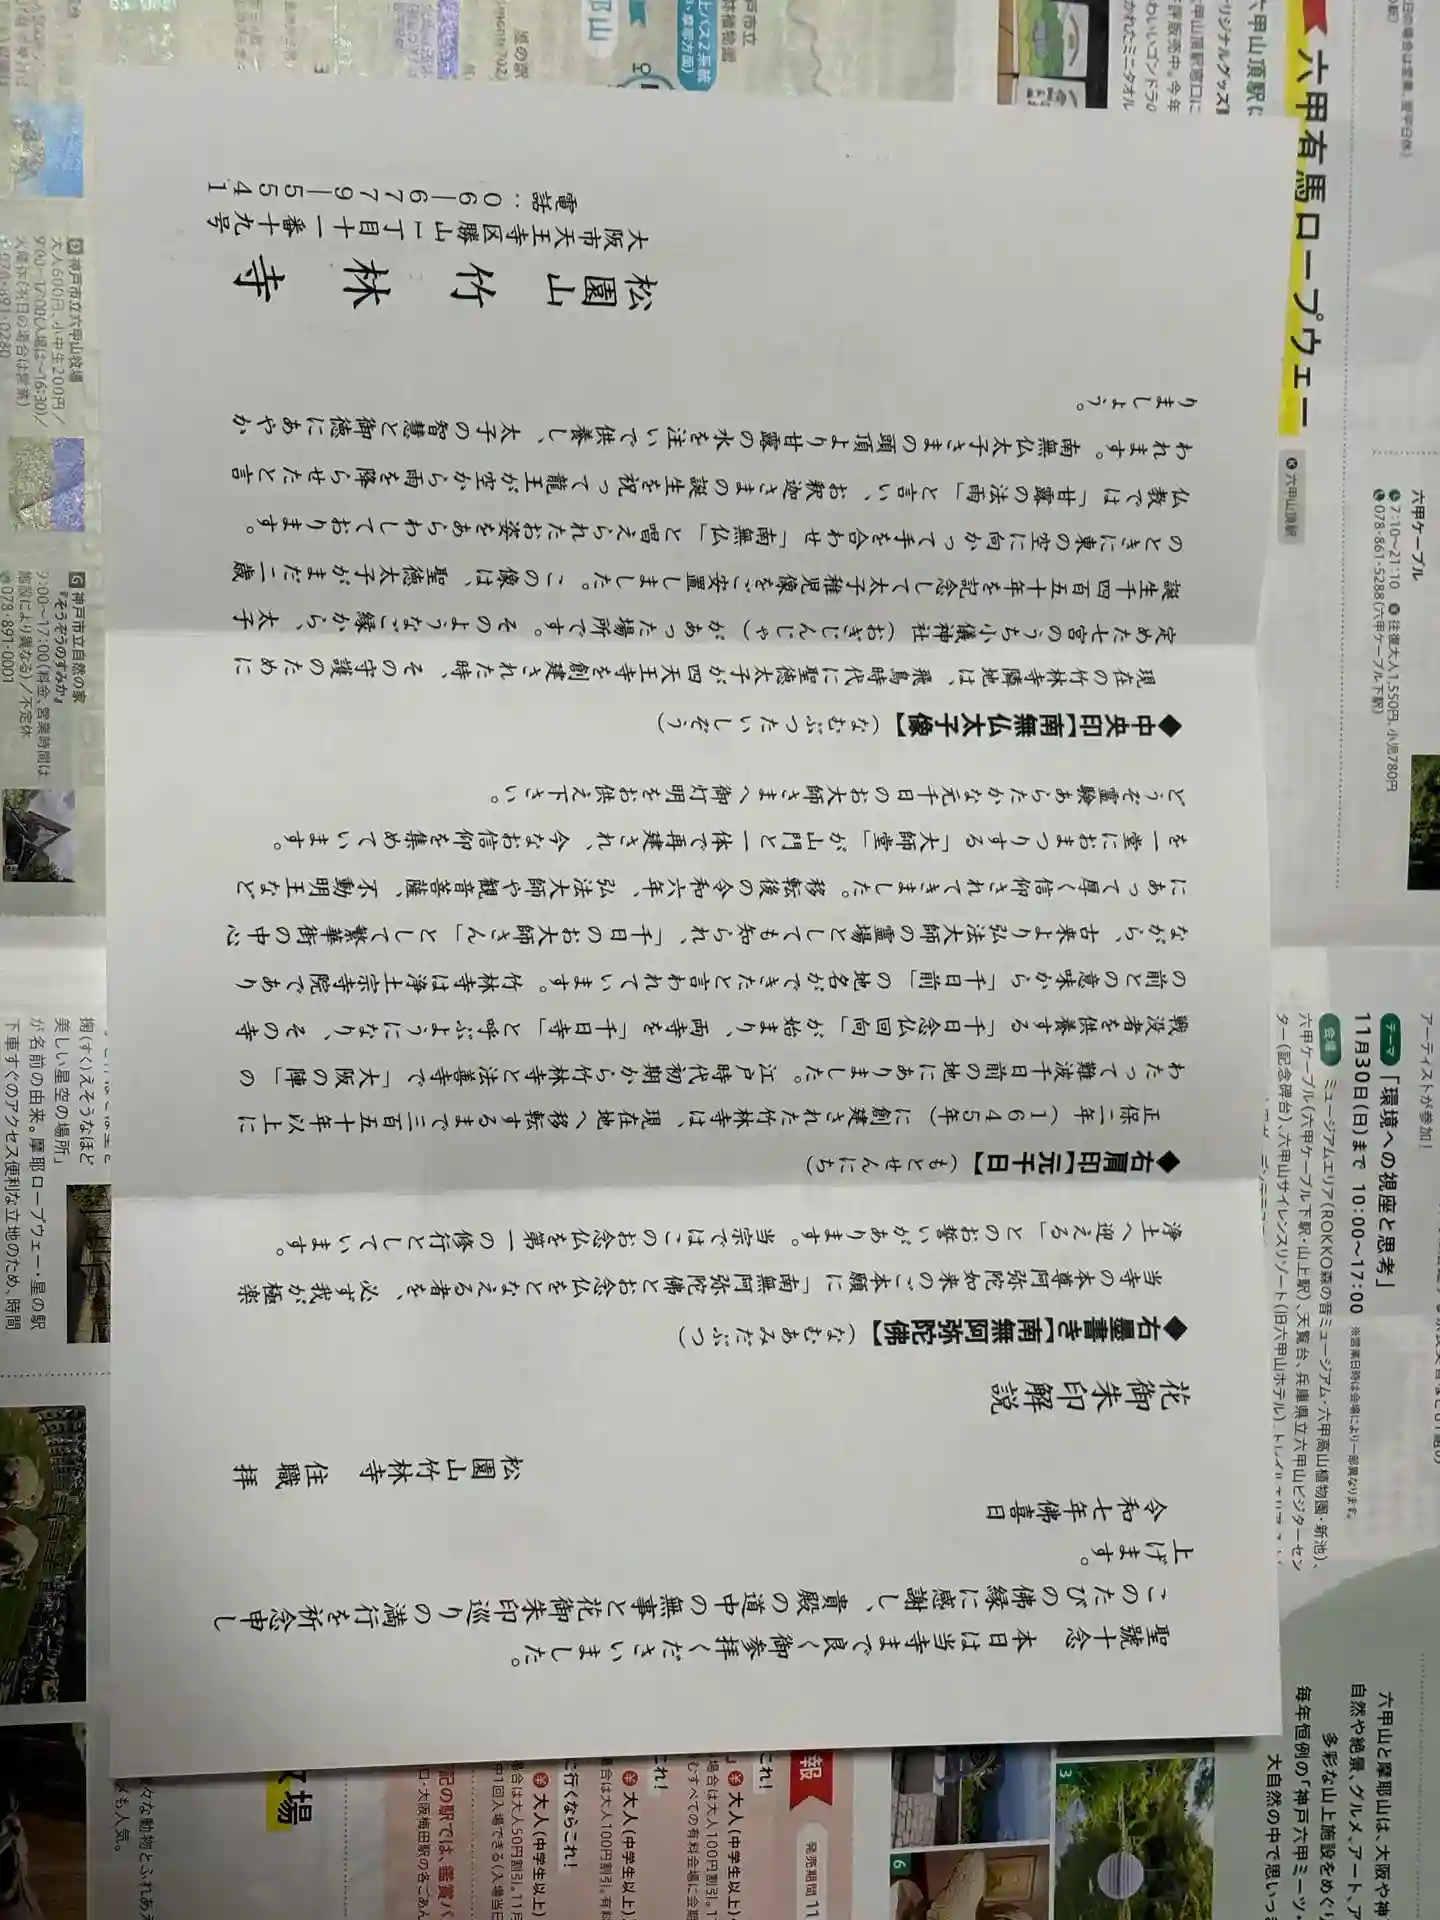 聖號十念　本日は当寺まで良く御参拝くださいました。
このたびの佛縁に感謝し、貴殿の道中の無事と花御朱印巡りの満行を祈念申し
上げます。
令和七年佛喜日
松園山竹林寺　住職　拝
花御朱印解説
◆右墨書き【南無阿弥陀佛】（なむあみだぶつ）
当寺の本尊阿弥陀如来のご本願に「南無阿弥陀佛とお念仏をとなえる者を、必ず我が極楽
浄土へ迎える」とのお誓いがあります。当宗ではこのお念仏を第一の修行としています。
◆右肩印【元千日】（もとせんにち）
正保二年（1645年）に創建された竹林寺は、現在地へ移転するまで三百五十年以上に
わたって難波千日前の地にありました。江戸時代初期から竹林寺と法善寺で「大阪の陣」の
戦没者を供養する「千日念仏回向」が始まり、両寺を「千日寺」と呼ぶようになり、その寺
の前との意味から「千日前」の地名ができたと言われています。竹林寺は浄土宗寺院であり
ながら、古来より弘法大師の霊場としても知られ、「千日のお大師さん」として繁華街の中心
にあって厚く信仰されてきました。移転後の令和六年、弘法大師や観音菩薩、不動明王など
を一堂におまつりする「大師堂」が山門と一体で再建され、今なお信仰を集めています。
どうぞ霊験あらたかな元千日のお大師さまへ御灯明をお供え下さい。
◆中央印【南無仏太子像】（なむぶつたいしぞう）
現在の竹林寺隣地は、飛鳥時代に聖徳太子が四天王寺を創建された時、その守護のために
定めた七宮のうち小儀神社（おぎじんじゃ）があった場所です。そのようなご縁から、太子
誕生千四百五十年を記念して太子稚児像をご安置しました。この像は、聖徳太子がまだ二歳
のときに東の空に向かって手を合わせ「南無仏」と唱えられたお姿をあらわしております。
仏教では「甘露の法雨」と言い、お釈迦さまの誕生を祝って龍王が空から雨を降らせたと言
われます。南無仏太子さまの頭頂より甘露の水を注いで供養し、太子の智慧と御徳にあやか
りましょう。
松園山　竹　林　寺
大阪市天王寺区勝山一丁目十一番十九号
電話：06―6779―5541
六甲有馬ロープウェー
六甲山頂駅
六甲ケーブル
7:10〜21:10　往復大人1,550円、小児780円
078・861・5288（六甲ケーブル下駅）
アーティストが参加！
テーマ「環境への視座と思考」
11月30日（日）まで 10:00〜17:00 ※営業日時は会場により一部異なります。
会場　ミュージアムエリア（ROKKO森の音ミュージアム・六甲高山植物園・新池）、
六甲ケーブル（六甲ケーブル下駅・山上駅）、天覧台、兵庫県立六甲山ビジターセン
ター（記念碑台）、六甲山サイレンスリゾート（旧六甲山ホテル）
六甲山と摩耶山は、大阪や神
自然や絶景、グルメ、アート、ア
多彩な山上施設をめぐり
毎年恒例の「神戸六甲ミーツ・
大自然の中で思いっき
神戸市立六甲山牧場
大人600円、小中生200円／
9:00〜17:00（入場は〜16:30）／
G 神戸市立自然の家
『そうぞうのすみか』
9:00〜17:00（料金、営業時間は
施設により異なる）／不定休
078・891・0001
掬（すく）えそうなほど
美しい星空の場所」
が名前の由来。摩耶ロープウェー・星の駅
下車すぐのアクセス便利な立地のため、時間